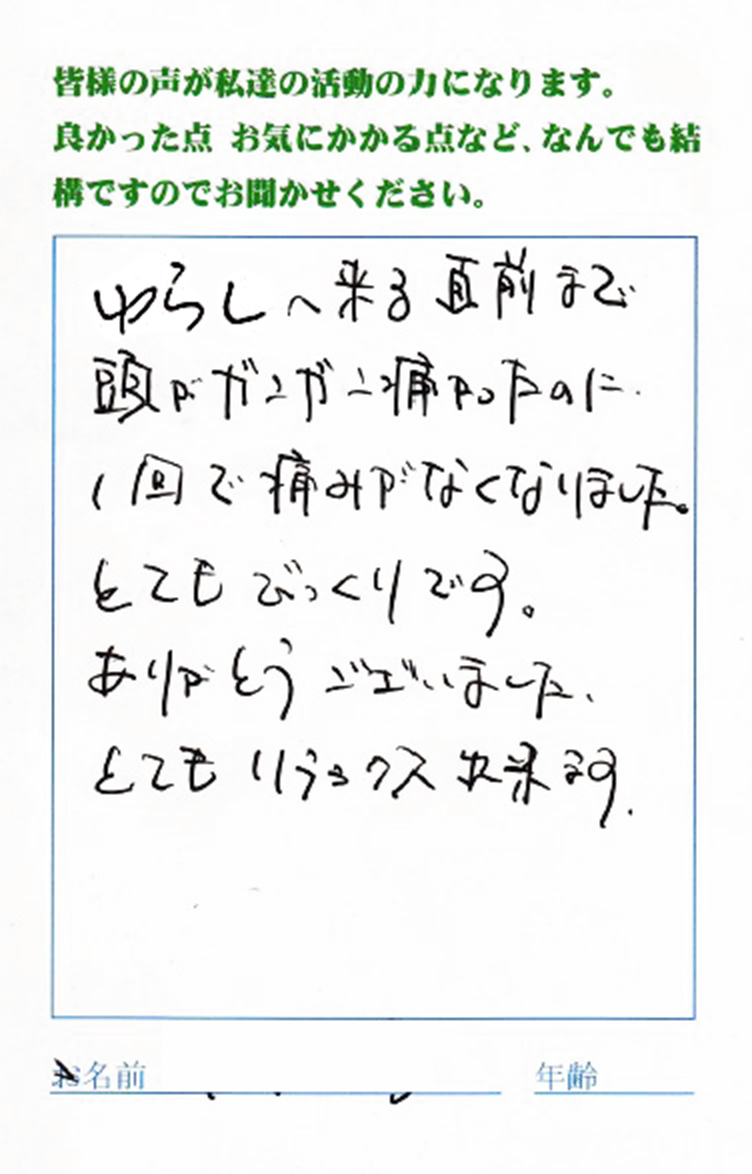 皆様の声が私達の活動の力になります。
良かった点 お気にかかる点など、なんでも結
構ですのでお聞かせください。
ゆらしへ来る直前まで
頭がガンガン痛かったのに
1回で痛みがなくなりました。
とてもびっくりです。
ありがとうございました、
とてもリラックス出来ます.
お名前
年齢